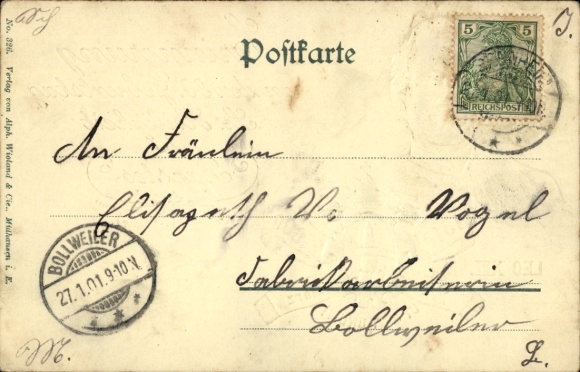 Sch
J.
Postkarte
5 5
REICHSPOST
No. 326. Verlag von Alph. Wioland & Cie., Mülhausen i. E.
An Fräulein
Elisabeth Vogel
Fabrikarbeiterin
Bollweiler
BOLLWEILER
27.1.01.9-10 N.
M.
L.